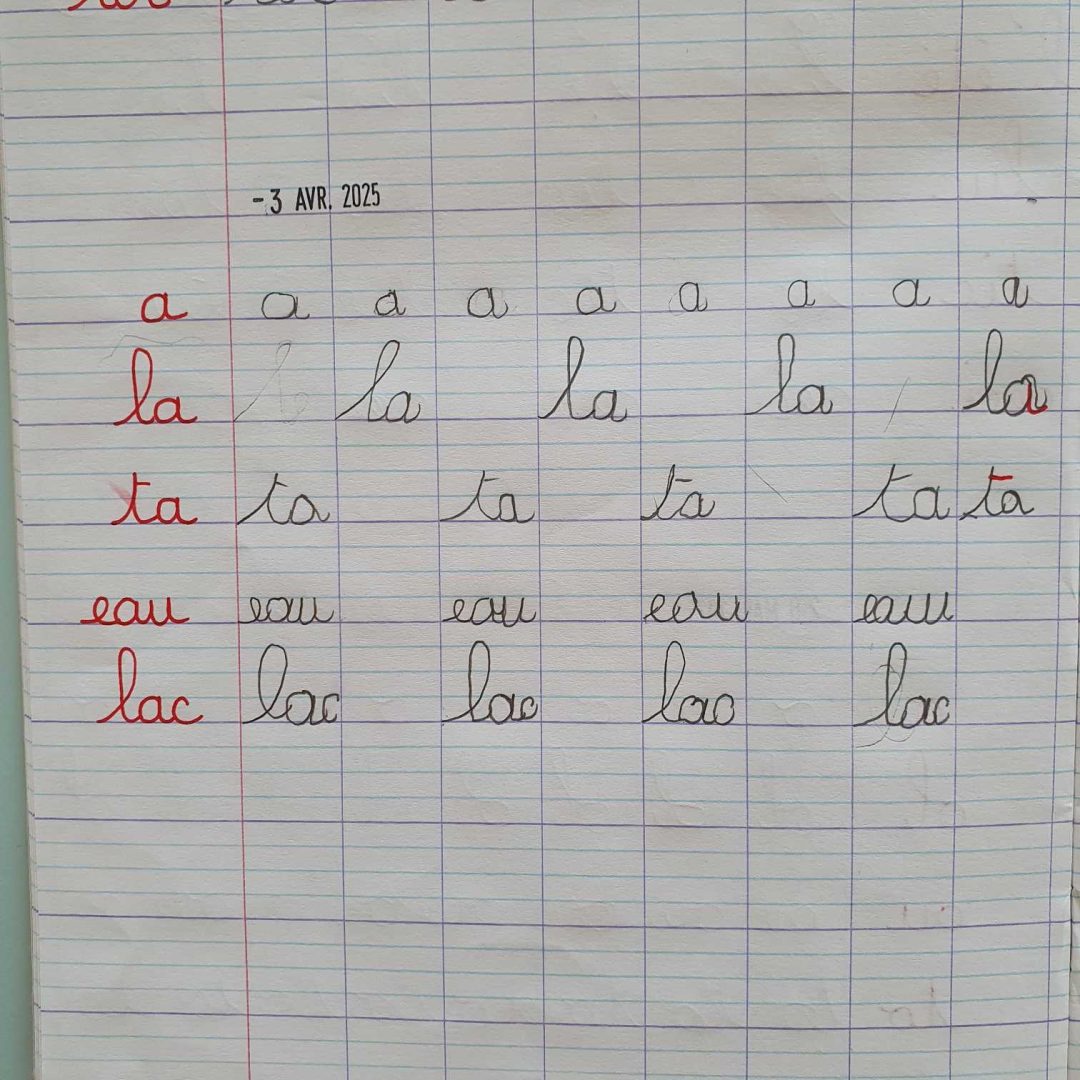 - 3 AVR. 2025
a a a a a a a a a
la la la la la la
ta ta ta ta ta ta
eau eau eau eau eau
lac lac lac lac lac